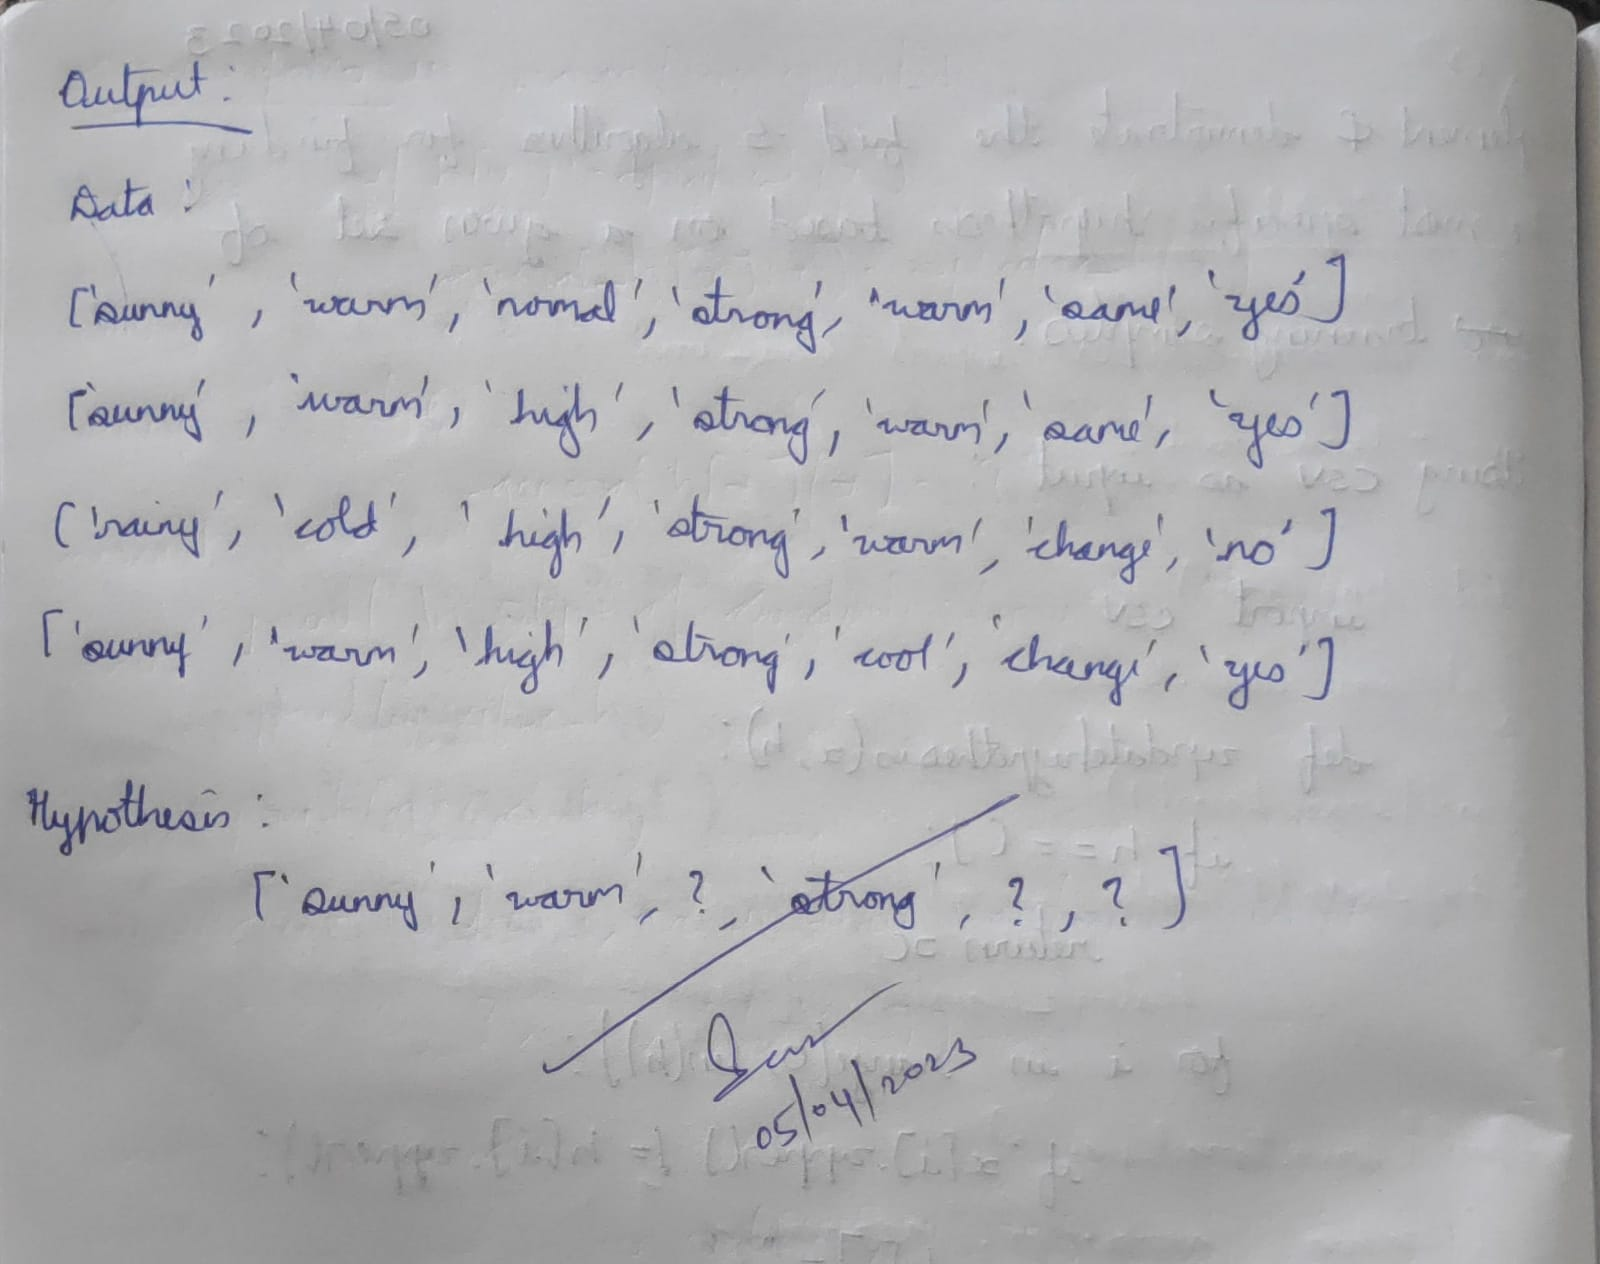 Output:
Data:
['sunny', 'warm', 'normal', 'strong', 'warm', 'same', 'yes']
['sunny', 'warm', 'high', 'strong', 'warm', 'same', 'yes']
['rainy', 'cold', 'high', 'strong', 'warm', 'change', 'no']
['sunny', 'warm', 'high', 'strong', 'cool', 'change', 'yes']
Hypothesis:
['sunny', 'warm', ?, 'strong', ?, ?]
05/04/2023